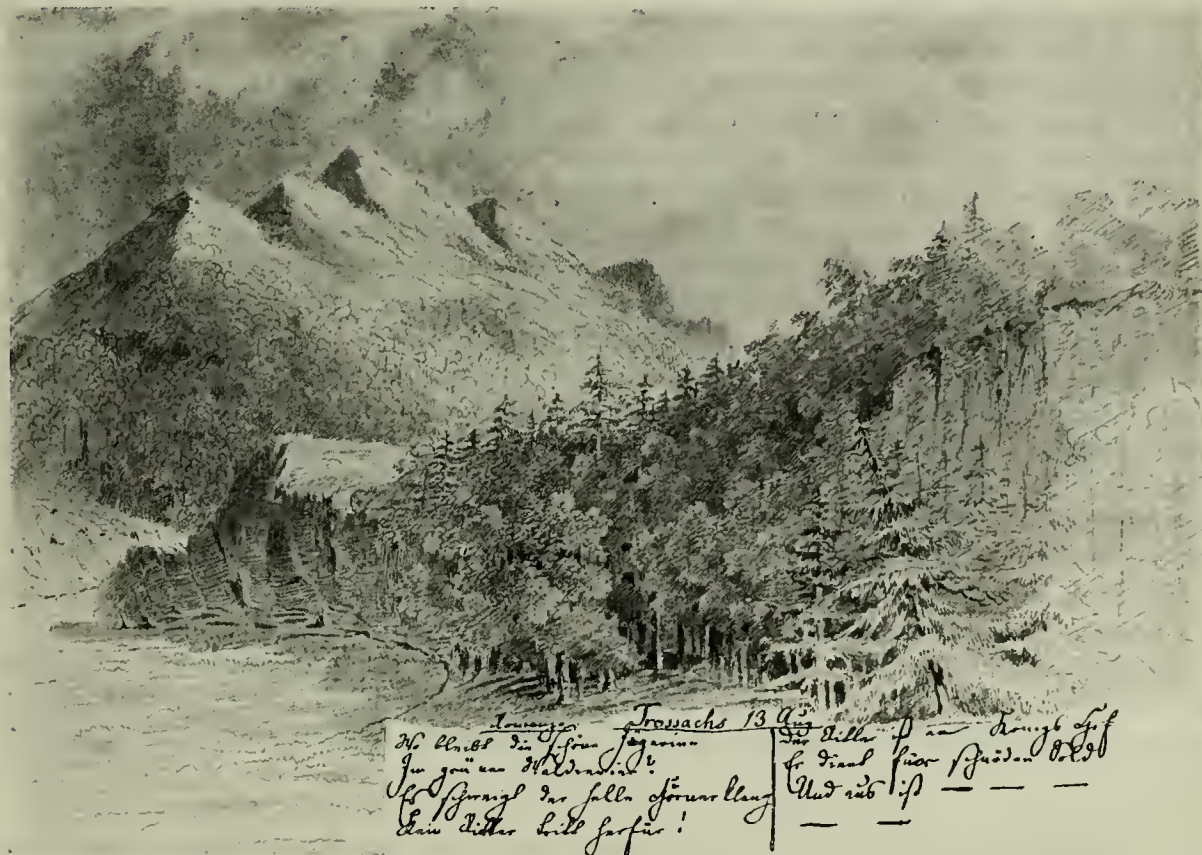 Romanze. Trossachs 13 Aug
Wo bleibt die schöne Jägerinn
Im grünen Waldrevier?
Es schweigt der helle Hörnerklang
Kein Ritter tritt herfür!
Der Ritter ist an Königs Hof
Er dient für schnöden Sold
Und aus ist — — —
— —